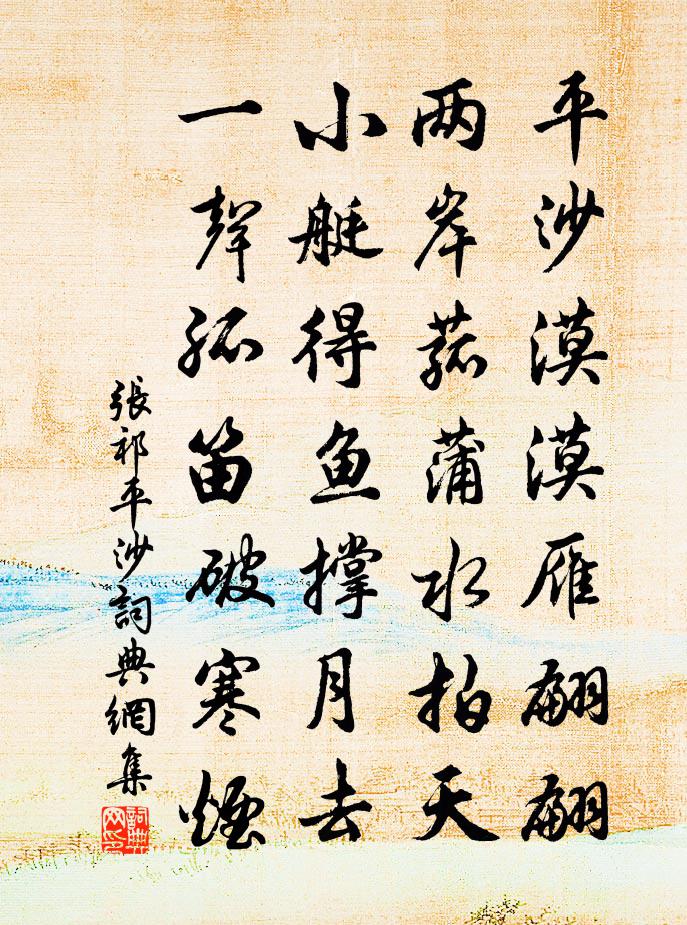 平沙漠漠雁翩翩
两岸菰蒲水拍天
小艇得鱼撑月去
一声孤笛破寒烟
張祁平沙詞典網集
詞典網印